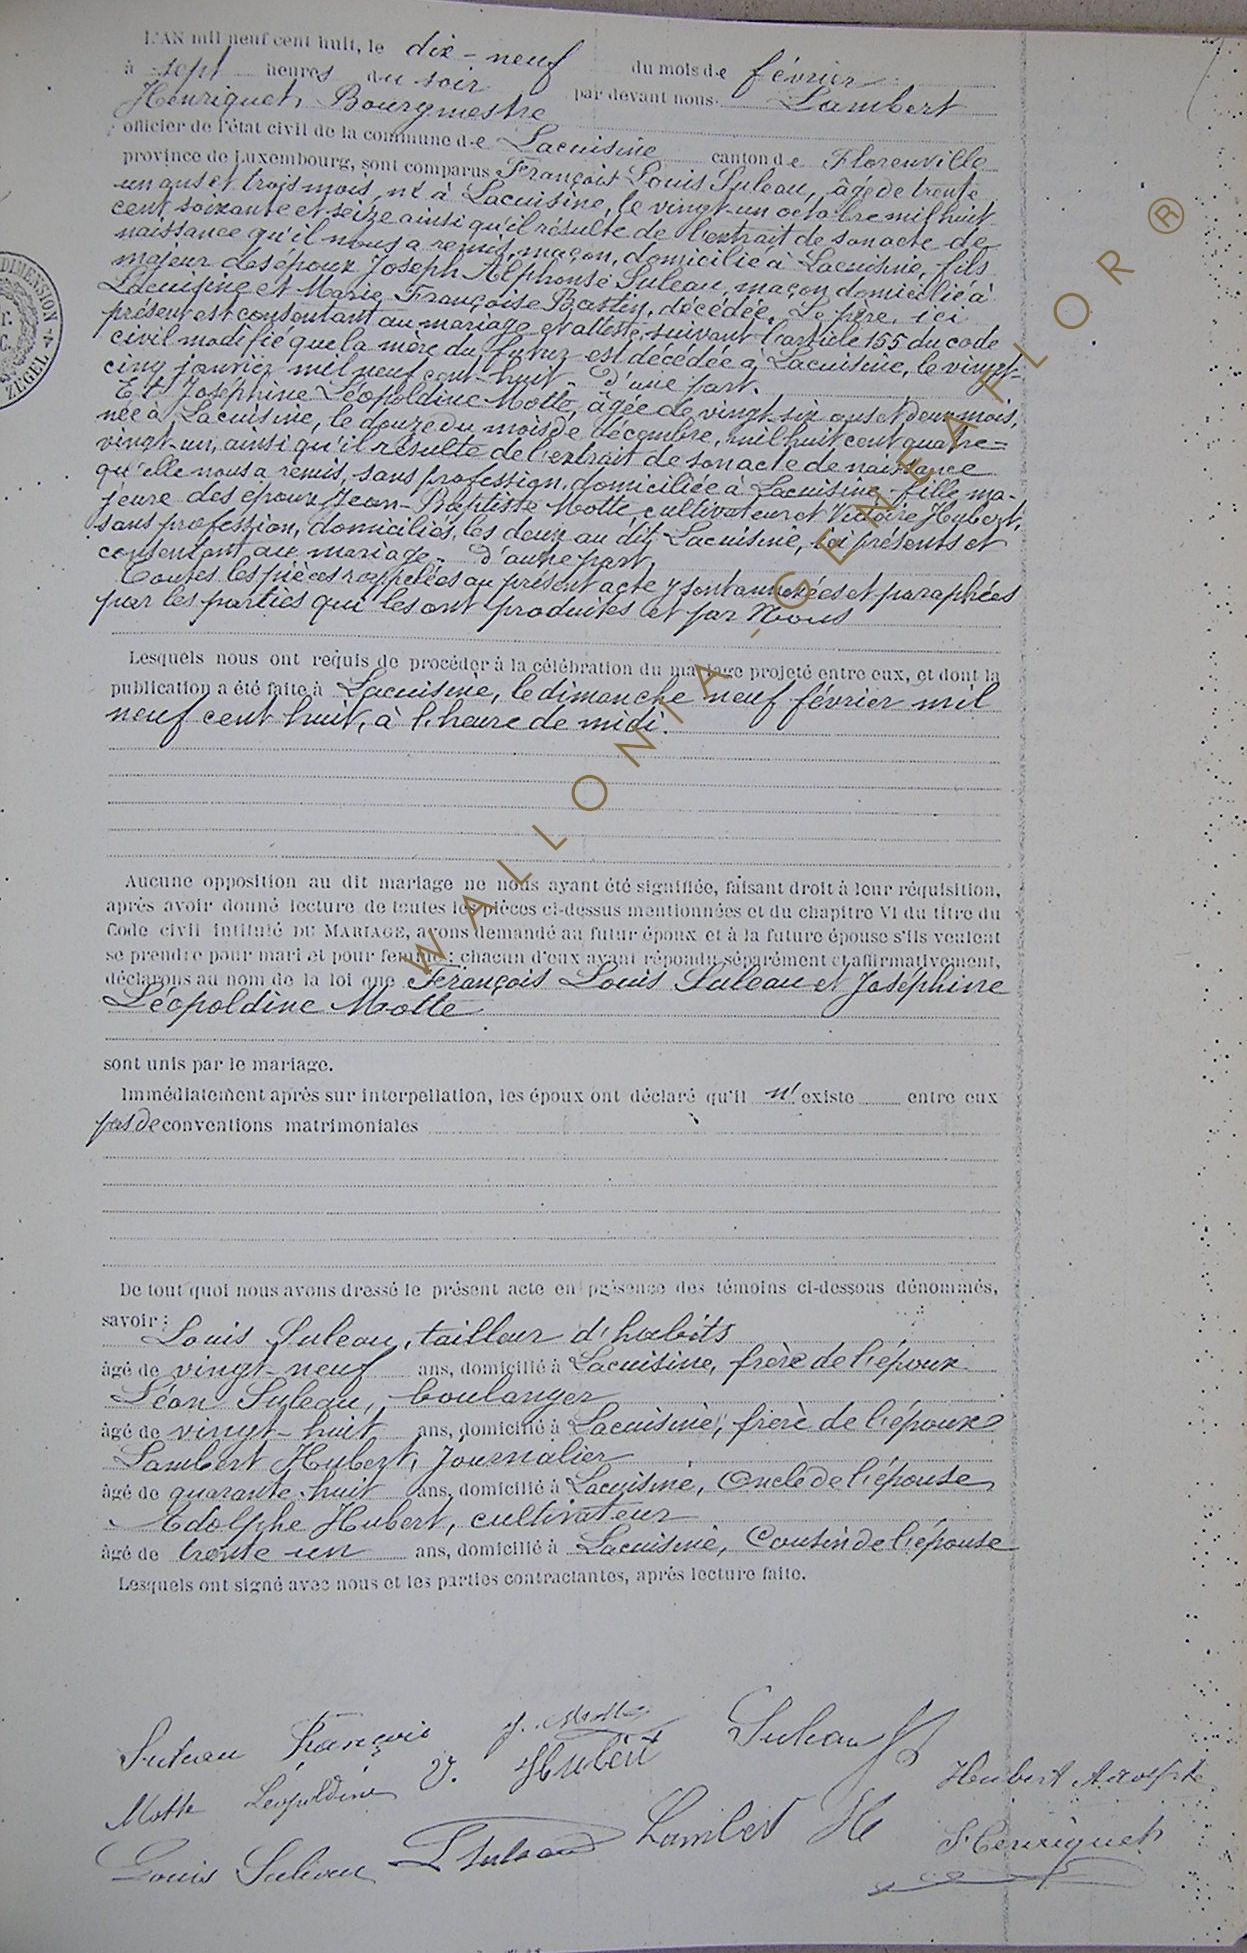 L'AN mil neuf cent huit, le dix-neuf du mois de février
à sept heures du soir par devant nous Lambert
Henriquet, Bourgmestre
officier de l'état civil de la commune de Lacuisine canton de Florenville
province de Luxembourg, sont comparus François Louis Suleau, âgé de trente
un ans et trois mois, né à Lacuisine, le vingt-un octobre mil huit
cent soixante et seize ainsi qu'il résulte de l'extrait de son acte de
naissance qu'il nous a remis, maçon, domicilié à Lacuisine, fils
majeur des époux Joseph Alphonse Suleau, maçon domicilié à
Lacuisine et Marie Françoise Bastin, décédée. Le père, ici
présent est consentant au mariage et atteste, suivant l'article 155 du code
civil modifié que la mère du futur est décédée à Lacuisine, le vingt-
cinq janvier mil neuf cent-huit - d'une part.
Et Joséphine Léopoldine Motte, âgée de vingt-six ans et deux mois,
née à Lacuisine, le douze du mois de décembre, mil huit cent quatre=
vingt-un, ainsi qu'il résulte de l'extrait de son acte de naissance
qu'elle nous a remis, sans profession, domiciliée à Lacuisine, fille ma-
jeure des époux Jean-Baptiste Motte cultivateur et Victoire Hubert,
sans profession, domiciliés, les deux au dit Lacuisine, ici présents et
consentant au mariage - d'autre part,
Toutes les pièces rappelées au présent acte y sont annexées et paraphées
par les parties qui les ont produites et par Nous
Lesquels nous ont requis de procéder à la célébration du mariage projeté entre eux, et dont la
publication a été faite à Lacuisine, le dimanche neuf février mil
neuf cent huit, à l'heure de midi.
Aucune opposition au dit mariage ne nous ayant été signifiée, faisant droit à leur réquisition,
après avoir donné lecture de toutes les pièces ci-dessus mentionnées et du chapitre VI du titre du
Code civil intitulé DU MARIAGE, avons demandé au futur époux et à la future épouse s'ils veulent
se prendre pour mari et pour femme ; chacun d'eux ayant répondu séparément et affirmativement,
déclarons au nom de la loi que François Louis Suleau et Joséphine
Léopoldine Motte
sont unis par le mariage.
Immédiatement après sur interpellation, les époux ont déclaré qu'il n'existe entre eux
pas de conventions matrimoniales
De tout quoi nous avons dressé le présent acte en présence des témoins ci-dessous dénommés,
savoir :
Louis Suleau, tailleur d'habits
âgé de vingt-neuf ans, domicilié à Lacuisine, frère de l'époux
Léon Suleau, boulanger
âgé de vingt-huit ans, domicilié à Lacuisine, frère de l'époux
Lambert Hubert, Journalier
âgé de quarante-huit ans, domicilié à Lacuisine, Oncle de l'épouse
Adolphe Hubert, cultivateur
âgé de trente un ans, domicilié à Lacuisine, Cousin de l'épouse
Lesquels ont signé avec nous et les parties contractantes, après lecture faite.
Suleau François J. Motte Suleau
Motte Léopoldine V. Hubert Hubert Adolphe
Louis Suleau L Suleau Lambert H Henriquet
DIMENSION
ZEGEL
WALLONIA-GENEAFLOR ®